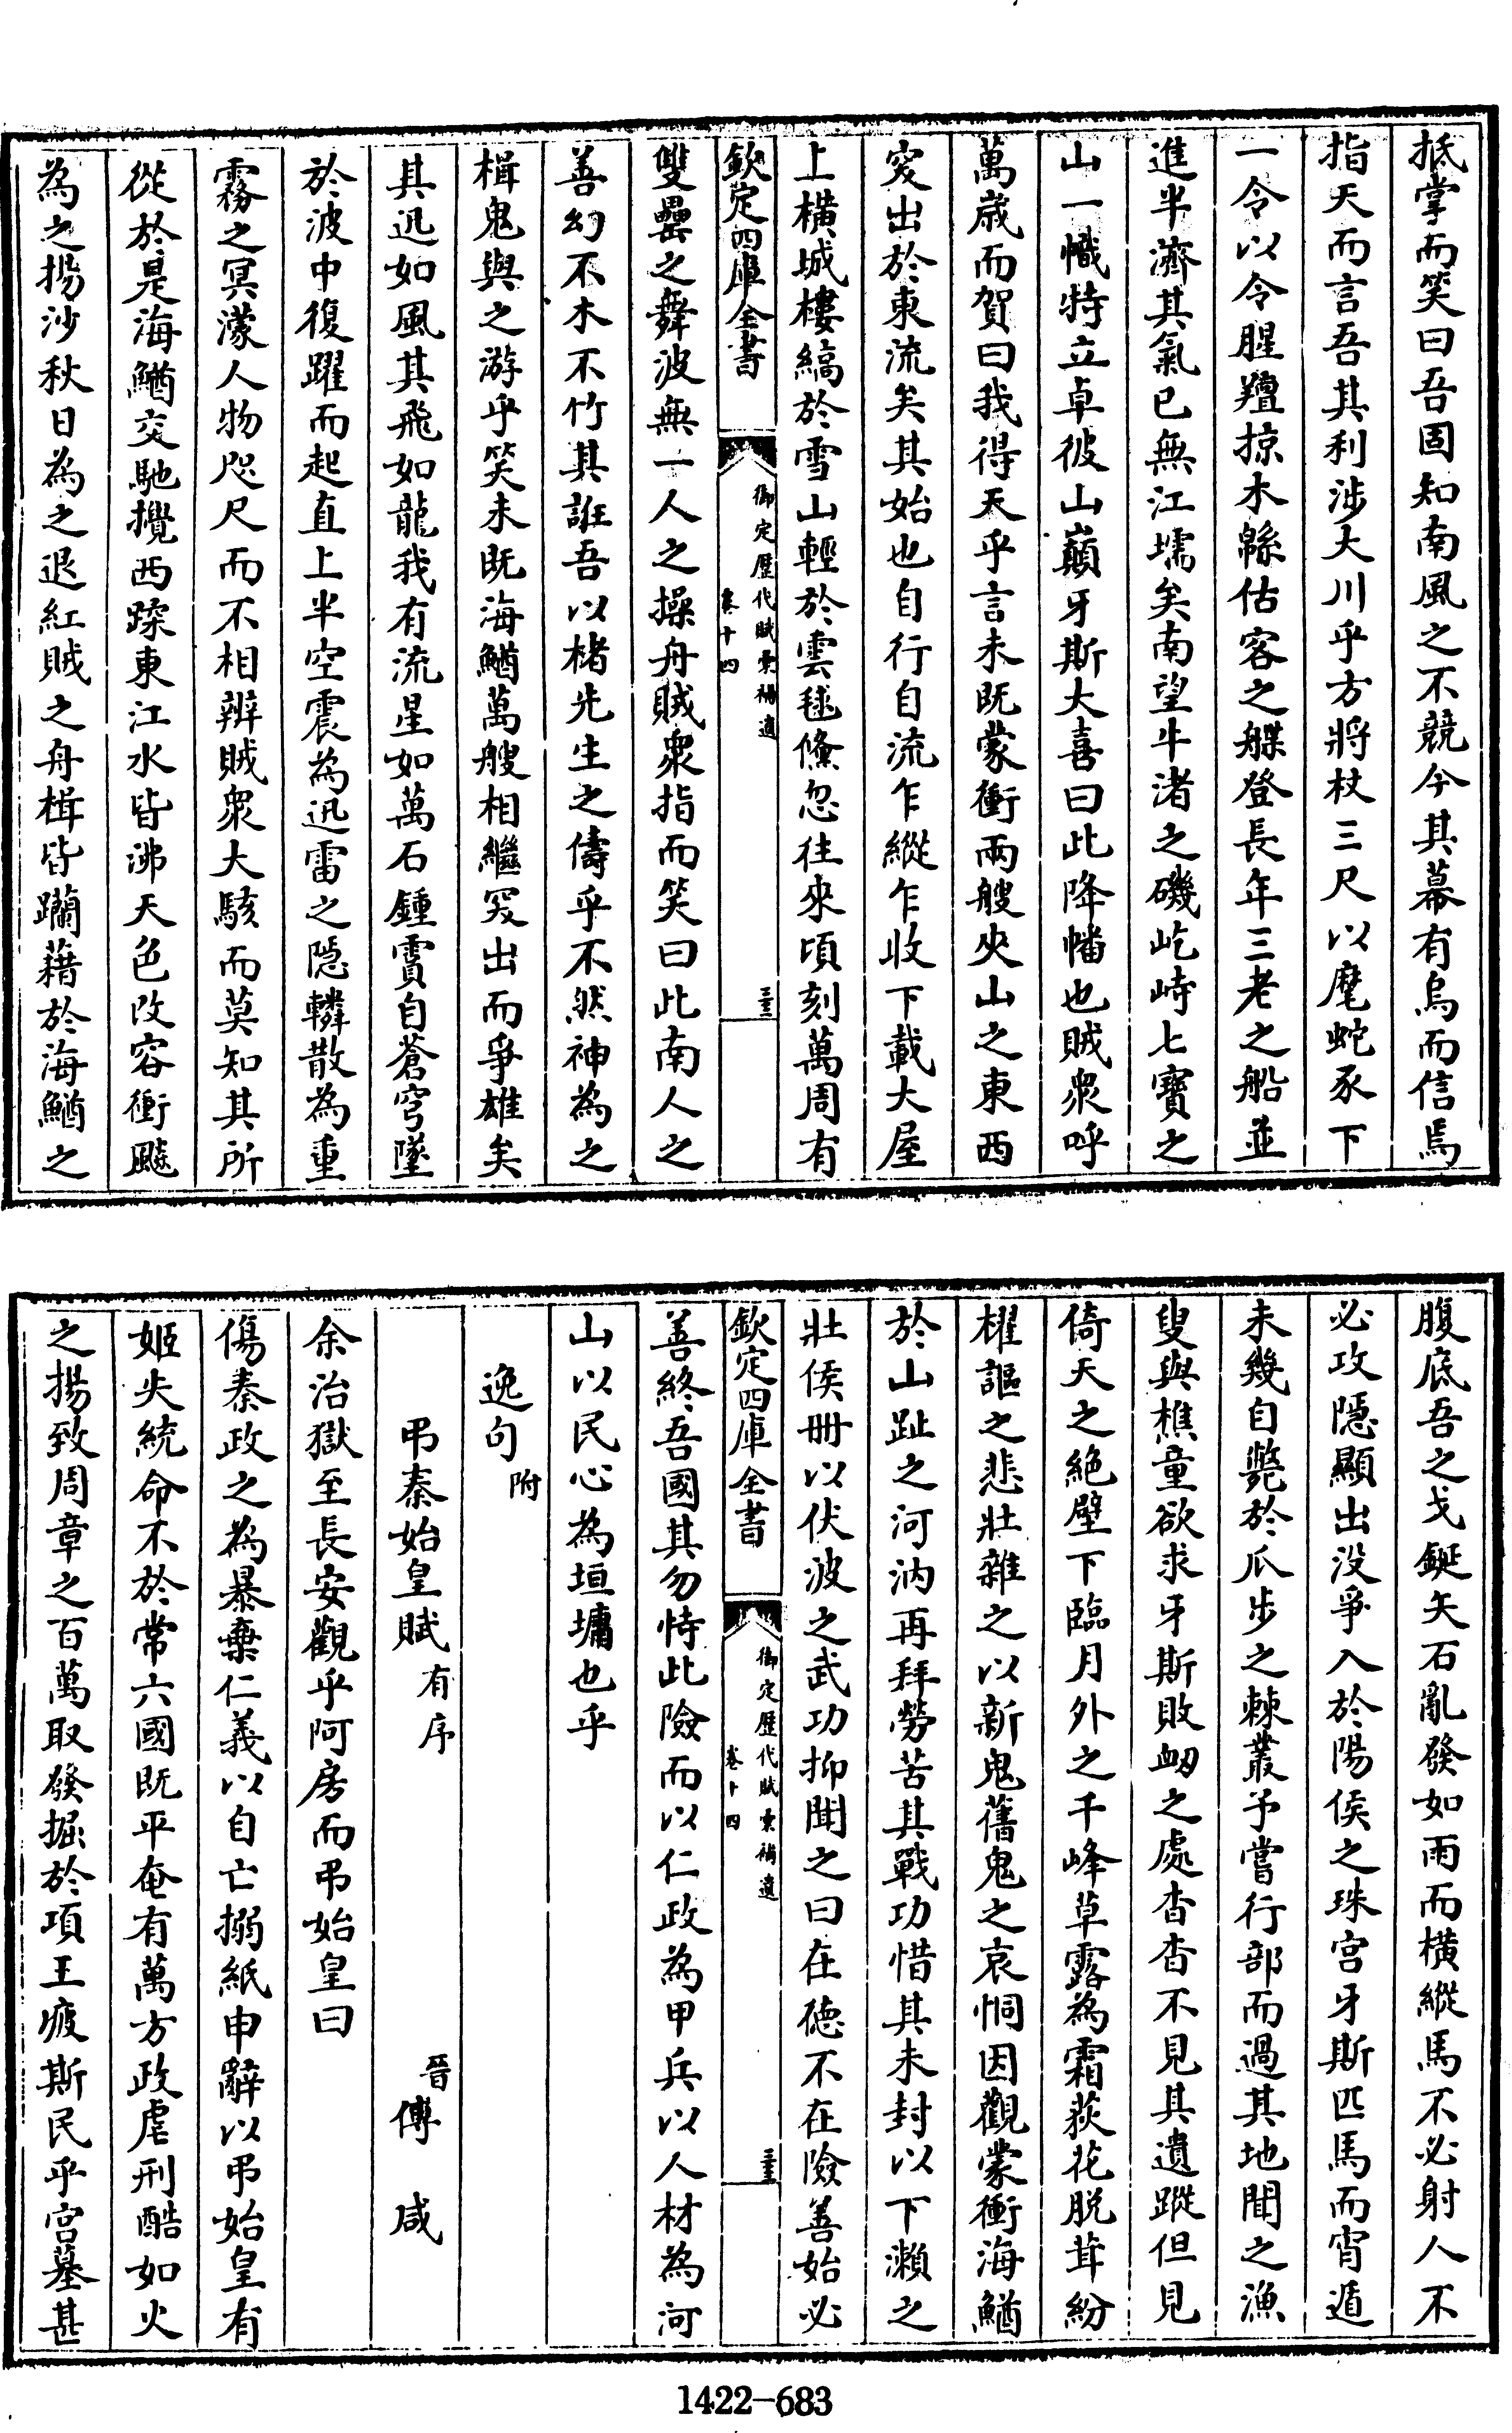 抵掌而笑曰吾固知南風之不競今其幕有烏而信焉
指天而言吾其利涉大川乎方將杖三尺以麾蛇豕下
一令以令腥羶掠木緜估客之艓登長年三老之船並
進半濟其氣已無江壖矣南望牛渚之磯屹峙七寶之
山一幟特立卓彼山巔牙斯大喜曰此降幡也賊衆呼
萬歲而賀曰我得天乎言未既蒙衝兩艘夾山之東西
突出於東流矣其始也自行自流乍縱乍收下載大屋
上横城樓縞於雪山輕於雲毬儵忽往來頃刻萬周有
欽定四庫全書
御定歷代賦彙補遺
卷十四
雙壘之舞波無一人之操舟賊衆指而笑曰此南人之
善幻不木不竹其誑吾以楮先生之儔乎不然神為之
楫鬼與之游乎笑未既海鰌萬艘相繼突出而爭雄矣
其迅如風其飛如龍我有流星如萬石鍾霣自蒼穹墜
於波中復躍而起直上半空震為迅雷之隱轔散為重
霧之冥濛人物咫尺而不相辨賊衆大駭而莫知其所
從於是海鰌交馳攪西蹂東江水皆沸天色改容衝飈
為之揚沙秋日為之退紅賊之舟楫皆躪藉於海鰌之
腹底吾之戈鋋矢石亂發如雨而横縱馬不必射人不
必攻隱顯出没爭入於陽侯之珠宫牙斯匹馬而宵遁
未幾自斃於瓜步之棘叢予嘗行部而過其地聞之漁
叟與樵童欲求牙斯敗衂之處杳杳不見其遺蹤但見
倚天之絶壁下臨月外之千峰草露為霜荻花脱茸紛
櫂謳之悲壯雜之以新鬼舊鬼之哀恫因觀蒙衝海鰌
於山趾之河汭再拜勞苦其戰功惜其未封以下瀨之
壯侯册以伏波之武功抑聞之曰在德不在險善始必
欽定四庫全書
御定歷代賦彙補遺
卷十四
善終吾國其勿恃此險而以仁政為甲兵以人材為河
山以民心為垣墉也乎
逸句附
弔秦始皇賦有序 晉傅咸
余治獄至長安觀乎阿房而弔始皇曰
傷秦政之為暴棄仁義以自亡搦紙申辭以弔始皇有
姬失統命不於常六國既平奄有萬方政虐刑酷如火
之揚致周章之百萬取發掘於項王疲斯民乎宫墓甚
1422-683